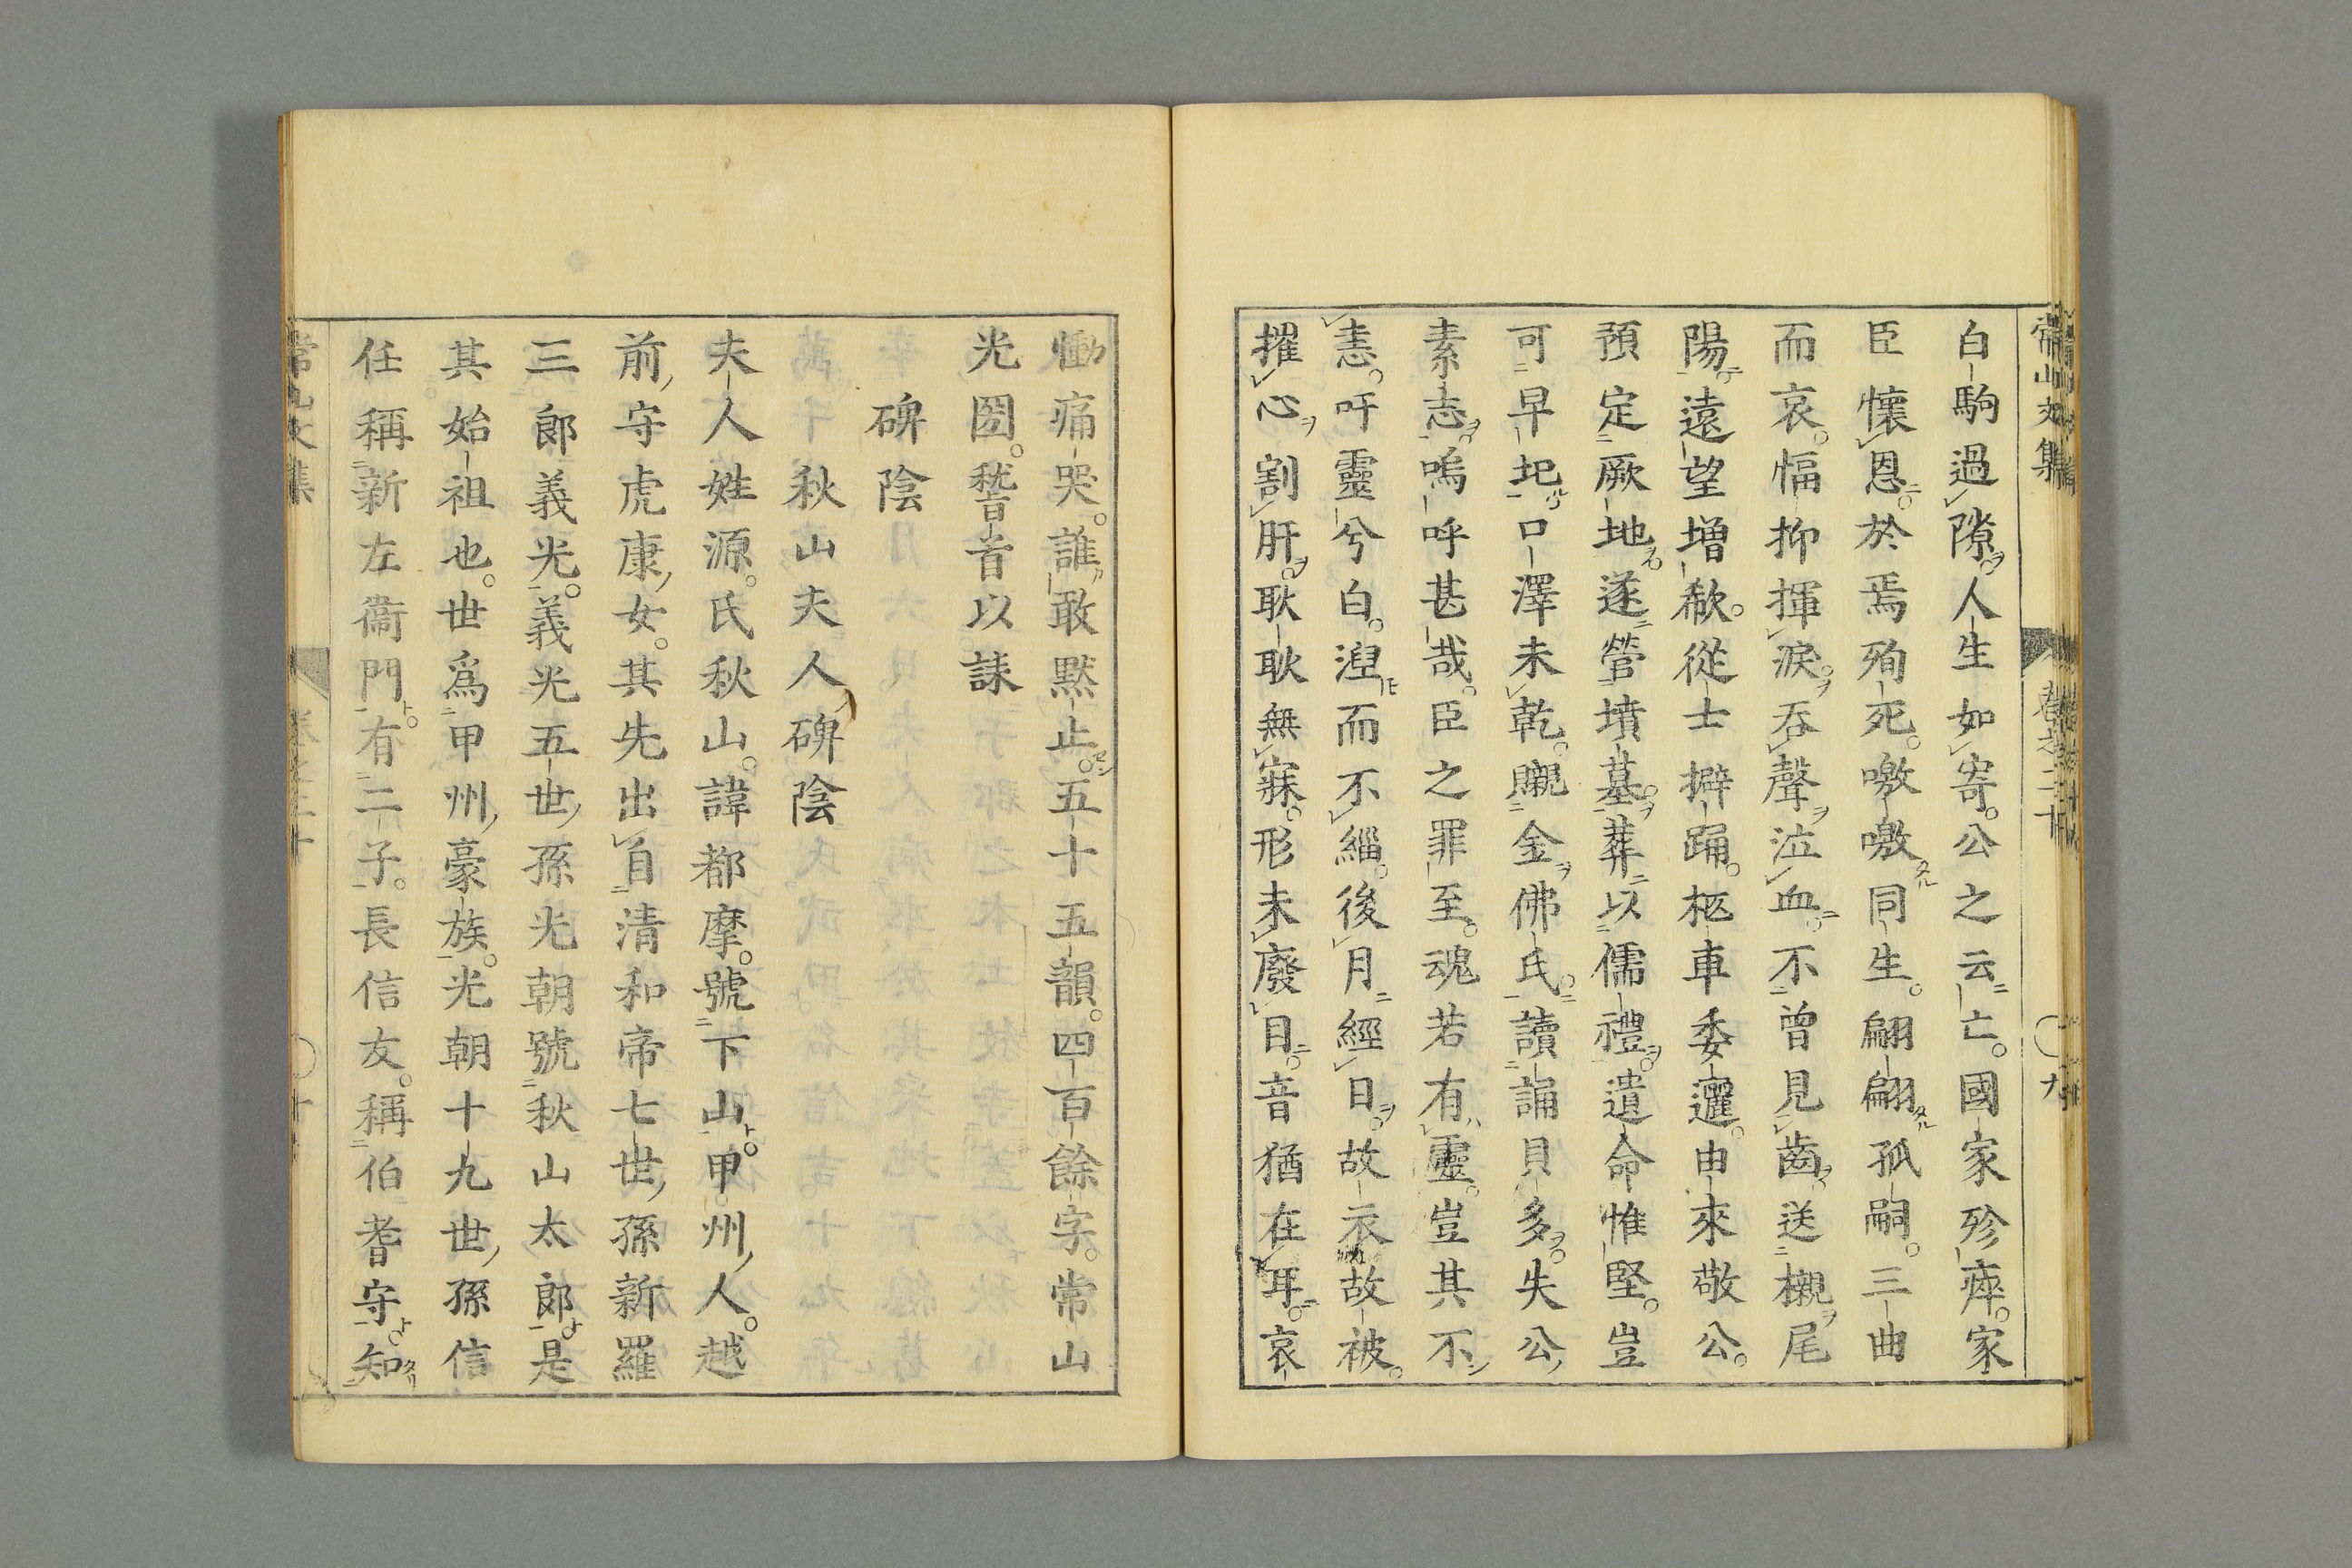 常山文集
卷之二十
九
白駒過隙人生如寄公之云亡國家殄瘁家
臣懷恩於焉殉死嗷嗷同生翩翩孤嗣三曲
而哀愊抑揮淚吞聲泣血不曾見齒送櫬尾
陽遠望增欷從士擗踊柩車委邐由來敬公
預定厥地遂營墳墓葬以儒禮遺命惟堅豈
可早圯口澤未乾賵金佛氏讀誦貝多失公
素志嗚呼甚哉臣之罪至魂若有靈豈其不
恚吁靈兮白涅而不緇後月經日故衣故被
摧心割肝耿耿無寐形未廢目音猶在耳哀
慟痛哭誰敢默止五十五韻四百餘字常山
光圀稽首以誄
碑陰
秋山夫人碑陰
夫人姓源氏秋山諱都摩號下山甲州人越
前守虎康女其先出自清和帝七世孫新羅
三郎義光義光五世孫光朝號秋山太郎是
其始祖也世爲甲州豪族光朝十九世孫信
任稱新左衞門有二子長信友稱伯耆守知